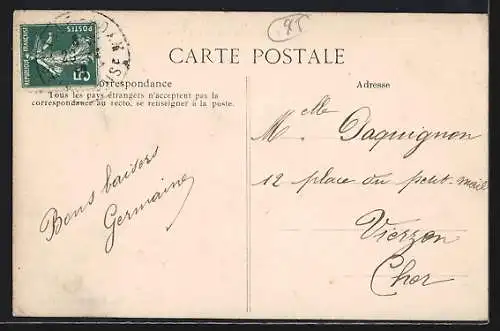 RÉPUBLIQUE FRANÇAISE
POSTES
5
CARTE POSTALE
Correspondance
Tous les pays étrangers n'acceptent pas la
correspondance au recto, se renseigner à la poste.
Bons baisers
Germaine
Adresse
Melle Daquignon
12 place du petit-mail
Vierzon
Cher